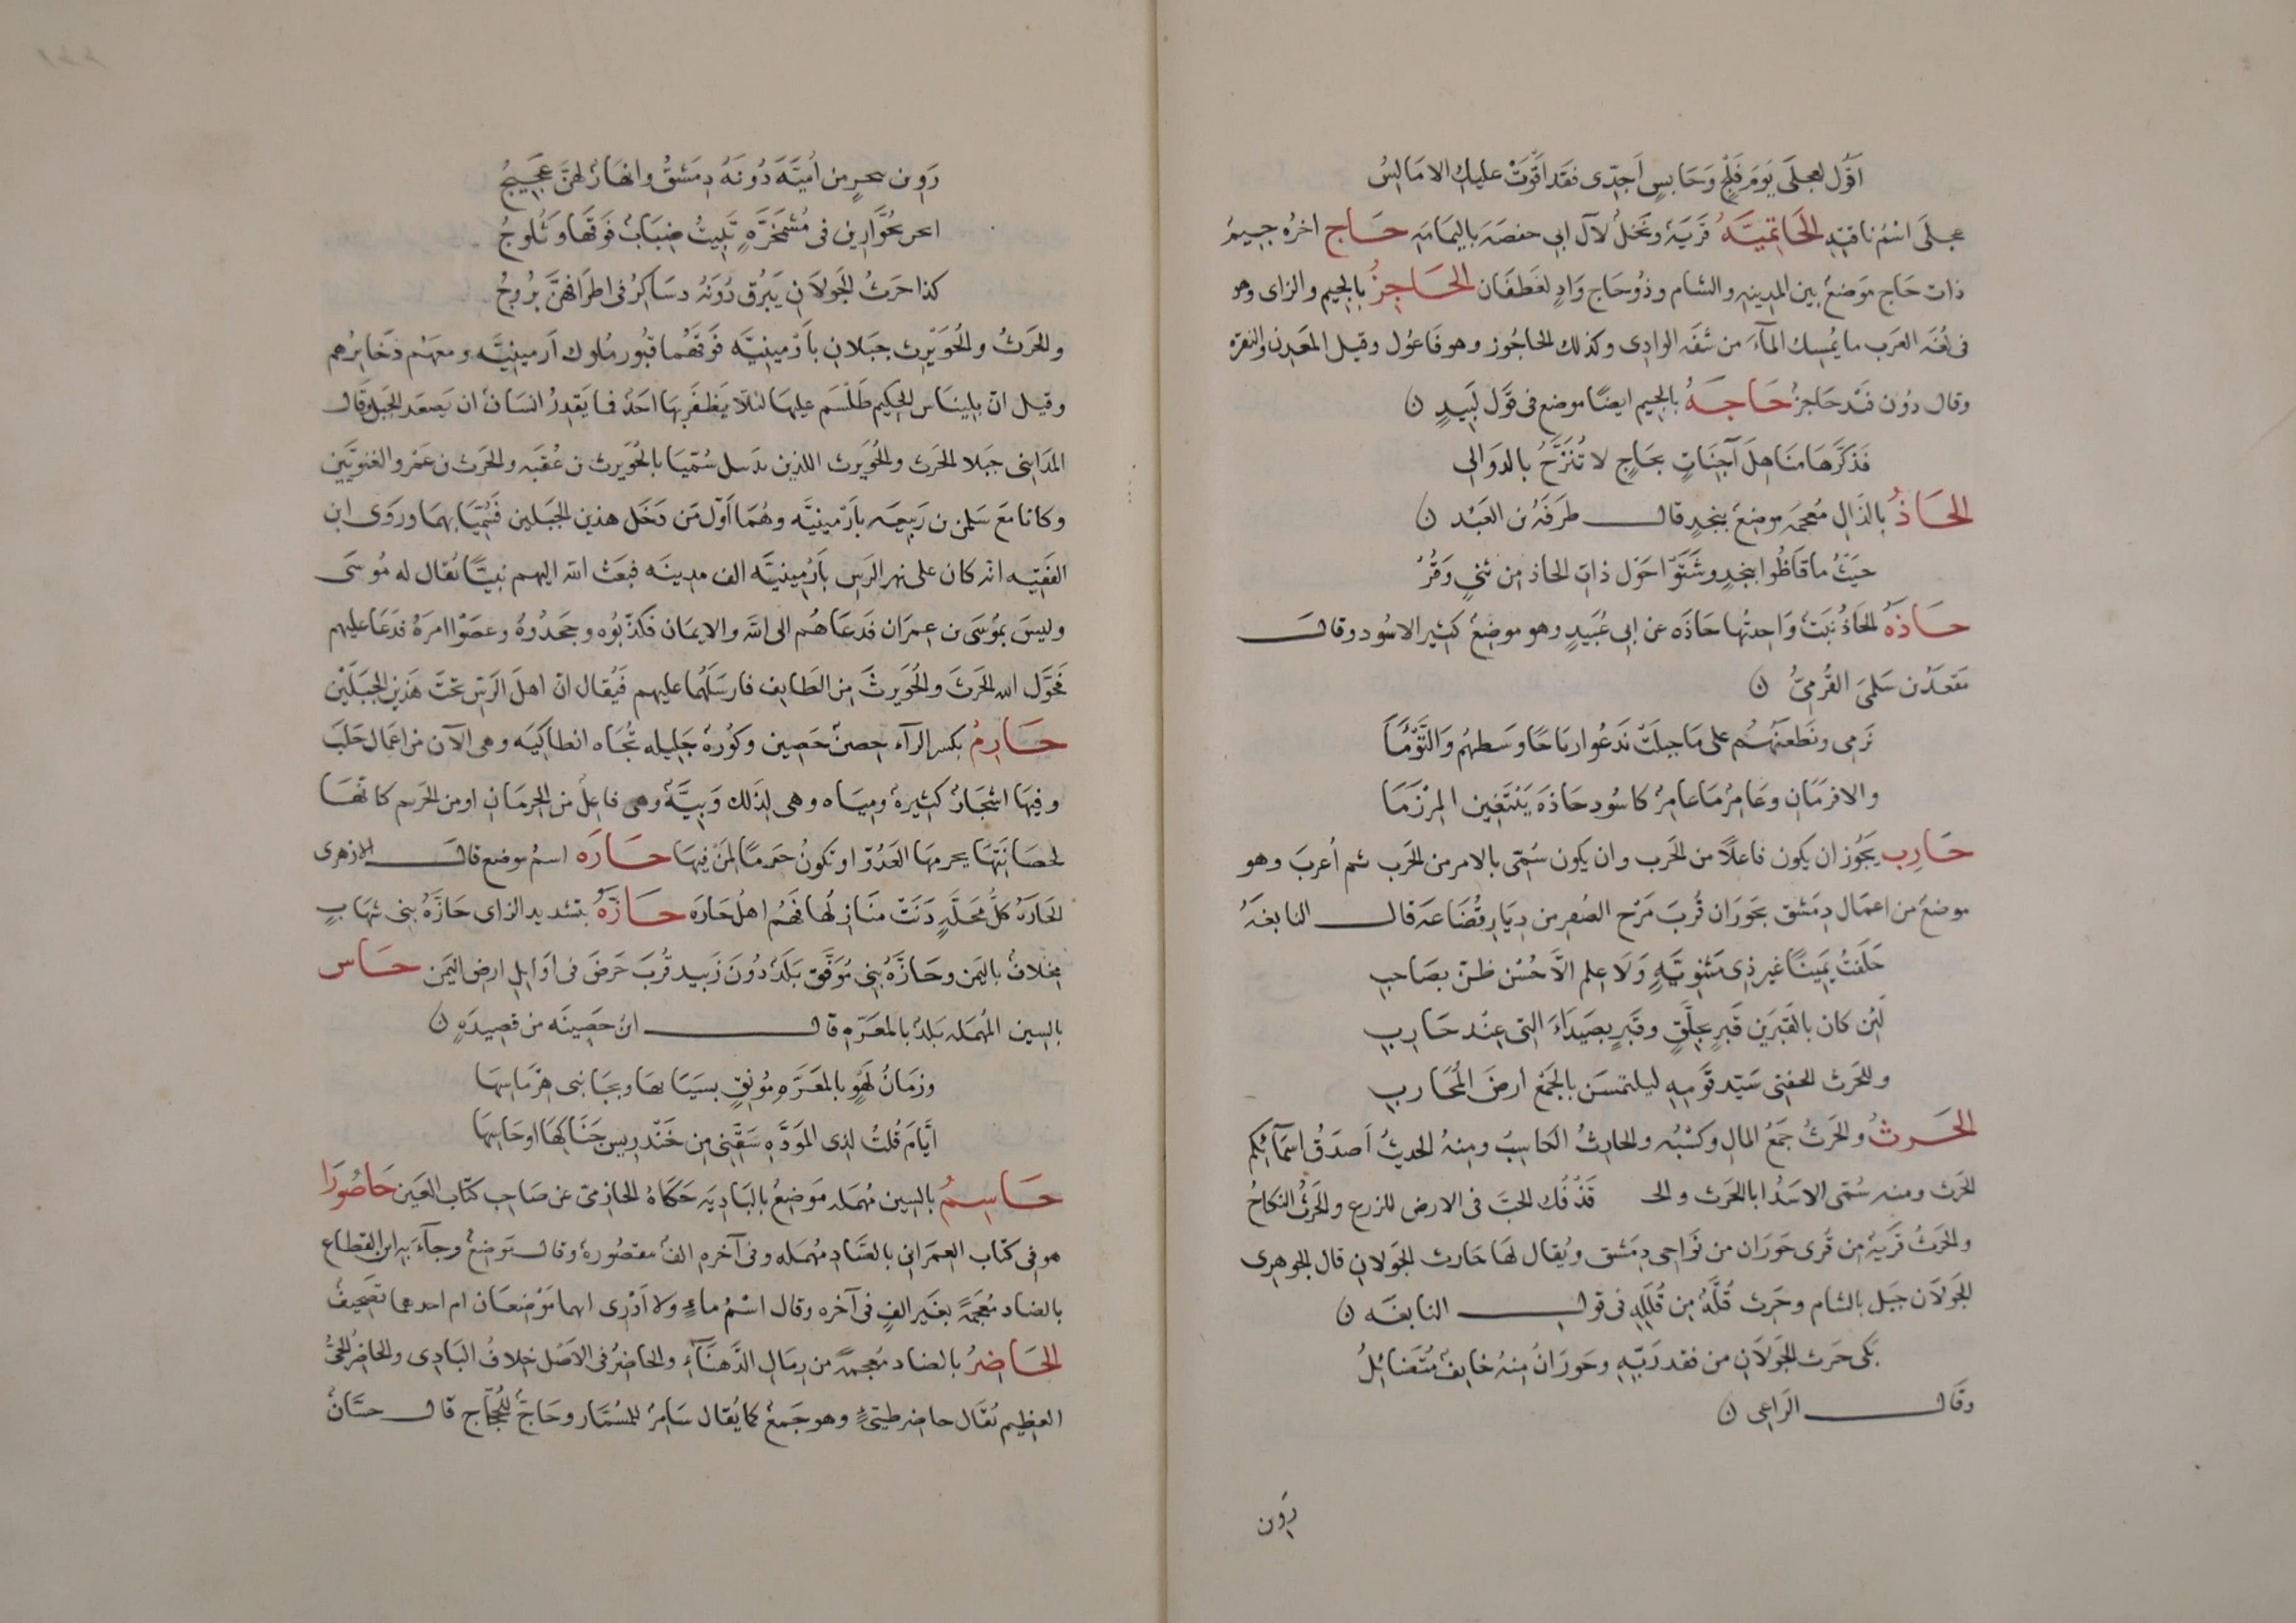 اَقُول لعجلَى يَومَ فَلْجٍ وَحَابسٍ اَجِدّى فقد اَقْوَتْ عليك الامَالِسُ
عجلَى اسْمُ ناقتِهِ الحَاتِميَّةُ قَريَة ونَخلٌ لآل ابى حفصَة باليمَامَه حَاج اخرُه جيمٌ
ذات حَاج موَضعٌ بين المدينه والشام وذوُحَاج وَادٍ لغَطفَان الحَاجِزُ بالجيم والزاى وهو
فى لغَه العَرَب ما يُمسِك المآءَ من شفَه الوادِى وكذلك الحاجُوز وهو فَاعُول وقيل المَعَدِن والنقره
وقال دُون فَنْد حَاجزٌ حَاجَةُ بالجيم ايضًا موضع فى قَول لَبيدٍ ن
فَذَكَّرهَا مَنَاهِلَ آجِنَاتٍ بحَاجٍ لا تُنَزَّحُ بالدَوَالى
الحَاذُ بالذَالِ مُعجمَه موضِعٌ بنجدٍ قال طرَفَهُ بن العَبْد ن
حيَثُ ما قَاظُوا بنجدٍ وشَتَوْا حَوْل ذاتِ الحاذ مِن ثنىِ وَقُرْ
حَاذَةُ الحَاذُ نبَتٌ وَاحِدتُها حَاذَه عن ابى عُبَيدٍ وهو موضعٌ كثير الاسُود وقال
مَقعَدُ بن سَلمىَ القُرمىُّ ن
نَرمى ونَطعَنُهُم على مَا خيلَتْ نَدعُوا رباحًا وسَطهُم وَالتَّوْءَمَا
والافرمَانِ وعَامِرٌ مَا عامِرٌ كاسُود حَاذهَ يَبْتَغِين المِرْزَمَا
حَارِب يجَوُز ان يكون فاعلاً من الحَرب وان يكون سُمّى بالامر من الحَرب ثم اُعرِبَ وهو
موضعٌ من اعمَال دِمَشق بحَورَان قُربَ مَرْج الصُفر من دِيَار قُضَاعَه قال النابغَهُ
حَلَفتُ يَمِينًا غير ذِى مَثنويَّهٍ وَلَا عِلم الاّ حُسْن ظنّ بصَاحِبِ
لَئِن كان بالقَبرَين قَبرٍ بجلَّقٍ وقَبرٍ بصَيدَاءَ التى عِنْد حَارِبِ
وللحَرث الجفنى سَيّد قوَمِهِ ليلتمسَن بالجَمْعِ ارضَ المُحَاربِ
الحَرثُ والحَرثُ جَمَعُ المالِ وكَسْبُه والحارِثُ الكَاسِبُ ومِنهُ الحديثُ اَصدَقُ اسمَآئكم
الحَرث ومنه سُمّى الاسَدُ ابا الحَرث والحـ قَذْفُك الحَبَ فى الارض للزرع والحَرثُ النكاحُ
والحَرثُ قَريَةٌ مِن قُرى حَورَان من نوَاحِى دِمَشق ويُقال لهَا حَارث الجَولانِ قال الجوهرى
الجَولَان جَبَل بالشام وحَرث قُلَّهٌ مِن قُلَلِهِ فى قول النابغَه ن
بَكى حَرث الجَولَان من فقد رَبّهِ وحَورَانُ مِنهُ خايفٌ مُتَضائلُ
وقَال الرَاعِى ن
رَوين
رَوِين بحرٍ من اُميَّه دُونَهُ دِمَشقُ وانهَارٌ لهنَّ عَجيجُ
انحر بحُوَّارين فى مُشمَخِرَّهٍ تَبِيتُ ضبَابٌ فَوقَهَا وَثُلوجُ
كذا حَرثُ الجَولَانِ يَبرُق دُونَهُ دسَاكِرُ فى اطرَافهنَّ بُروجُ
والحَرثُ والحُوَيْرِث جبَلانِ بأَرْمِينِيَّه فَوقَهُما قبُور مُلوك اَرمينيَّه ومعهُم ذَخَايرُهم
وقيل انّ بلِينَاس الحكِيم طَلْسَم عليهَا لئلّا يَظفَر بهَا احَدٌ فما يَقدِرُ انسَانٌ ان يَصعَد الجَبَل وَقال
المدَاينى جَبَلا الحَرث والحُوَيرث اللذين بدَبيل سُمّيَا بالحُوَيرث بن عُقبَه والحَرث بن عَمْرو الغنويَّين
وكانا مَعَ سَلمن بن رَبيعَه بأَرْمينيَّه وهُمَا اَوَّل مَن دَخَل هذين الجَبَلين فَسُمِّيَا بهمَا ورَوَى ابن
الفَقيه انّه كان على نهر الرَسِ بأَرْمينيَّه الف مدِينَه فبَعَث الله اليهم نبيًّا يُقال له مُوسَى
وليسَ بمُوسَى بن عِمرَان فدَعَاهُم الى الله والايمَان فكَذّبُوه وجَحَدُوهُ وعصَوْا امرَهُ فدَعَا عليهم
فحَوَّل الله الحَرثَ والحُوَيرثَ مِن الطَايفِ فارسَلهُما عليهم فيُقال انّ اهلَ الرَسّ تحتَ هَذين الجَبَلَين
حَارِمُ بكسر الرآء حِصنٌ حَصِين وكُورهٌ جَليله تُجَاه انطاكيَه وهى الآن من اعمَال حَلبَ
وفيهَا اشجَارٌ كثيرهٌ ومِيَاه وهى لِذَلك وَبيَّهٌ وهى فاعِلٌ من الحِرمَانِ او من الحَريم كانّهَا
لحصَانَتِهَا يحرمهَا العَدُوّ او تكونُ حَرمًا لِمَنْ فِيهَا حَارَه اسمُ موضِع قال الازهرى
الحَارَهُ كلُّ مَحَلَّهٍ دَنَتْ منَازلُها فَهُم اهلُ حَارَه حَازَّهُ بتشديد الزاى حَازَّهُ بنى شهَابٍ
مِخلافٌ باليمَن وحَازَّهُ بنِى مُوَفَّق بَلَدٌ دُونَ زَبيد قُربَ حَرَضَ فى اَوَايل ارض اليمَن حَاس
بالسِين المُهمَله بَلدٌ بالمعَرَّهِ قال ابنُ حَصِينَه من قصِيدَهٍ ن
وزمَانُ لَهوٍ بالمعَرَّهِ مُونِقٍ بسَيَا بها وبجَانبى هِرْمَاسهَا
ايَّامَ قُلتُ لِذِى الموَدَّهِ سَقّنى مِن خَندرِيسِ حَنَاكهَا او حَاسِهَا
حَاسِمُ بالسِين مُهمَله مَوَضعٌ بالبَادِيَه حَكَاهُ الحازِمىّ عن صَاحِبِ كتاب العَين حَاصُورَا
هو فى كتاب العِمرَانى بالصَّاد مُهمَله وفى آخره الفٌ مقصُورهٌ وقال مَوَضعٌ وجآءَ بهِ ابن القطاع
بالضاد مُعجَمهً بغَير الفٍ فى آخره وقال اسْمُ ماءٍ ولا اَدْرِى اهما مَوْضعَان ام احدهما تَصحِيفٌ
الحَاضِرُ بالضاد مُعجمهً من رِمَالِ الدَّهنَآءِ والحاضِرُ فى الاَصْل خِلافُ البَادِى والحاضِرُ الحَىُّ
العظِيم يُقَال حاضر طَيّئٍ وهو جَمعٌ كما يُقال سَامِرٌ للسُمّار وحَاجٌّ للحُجّاج قال حسَّانُ